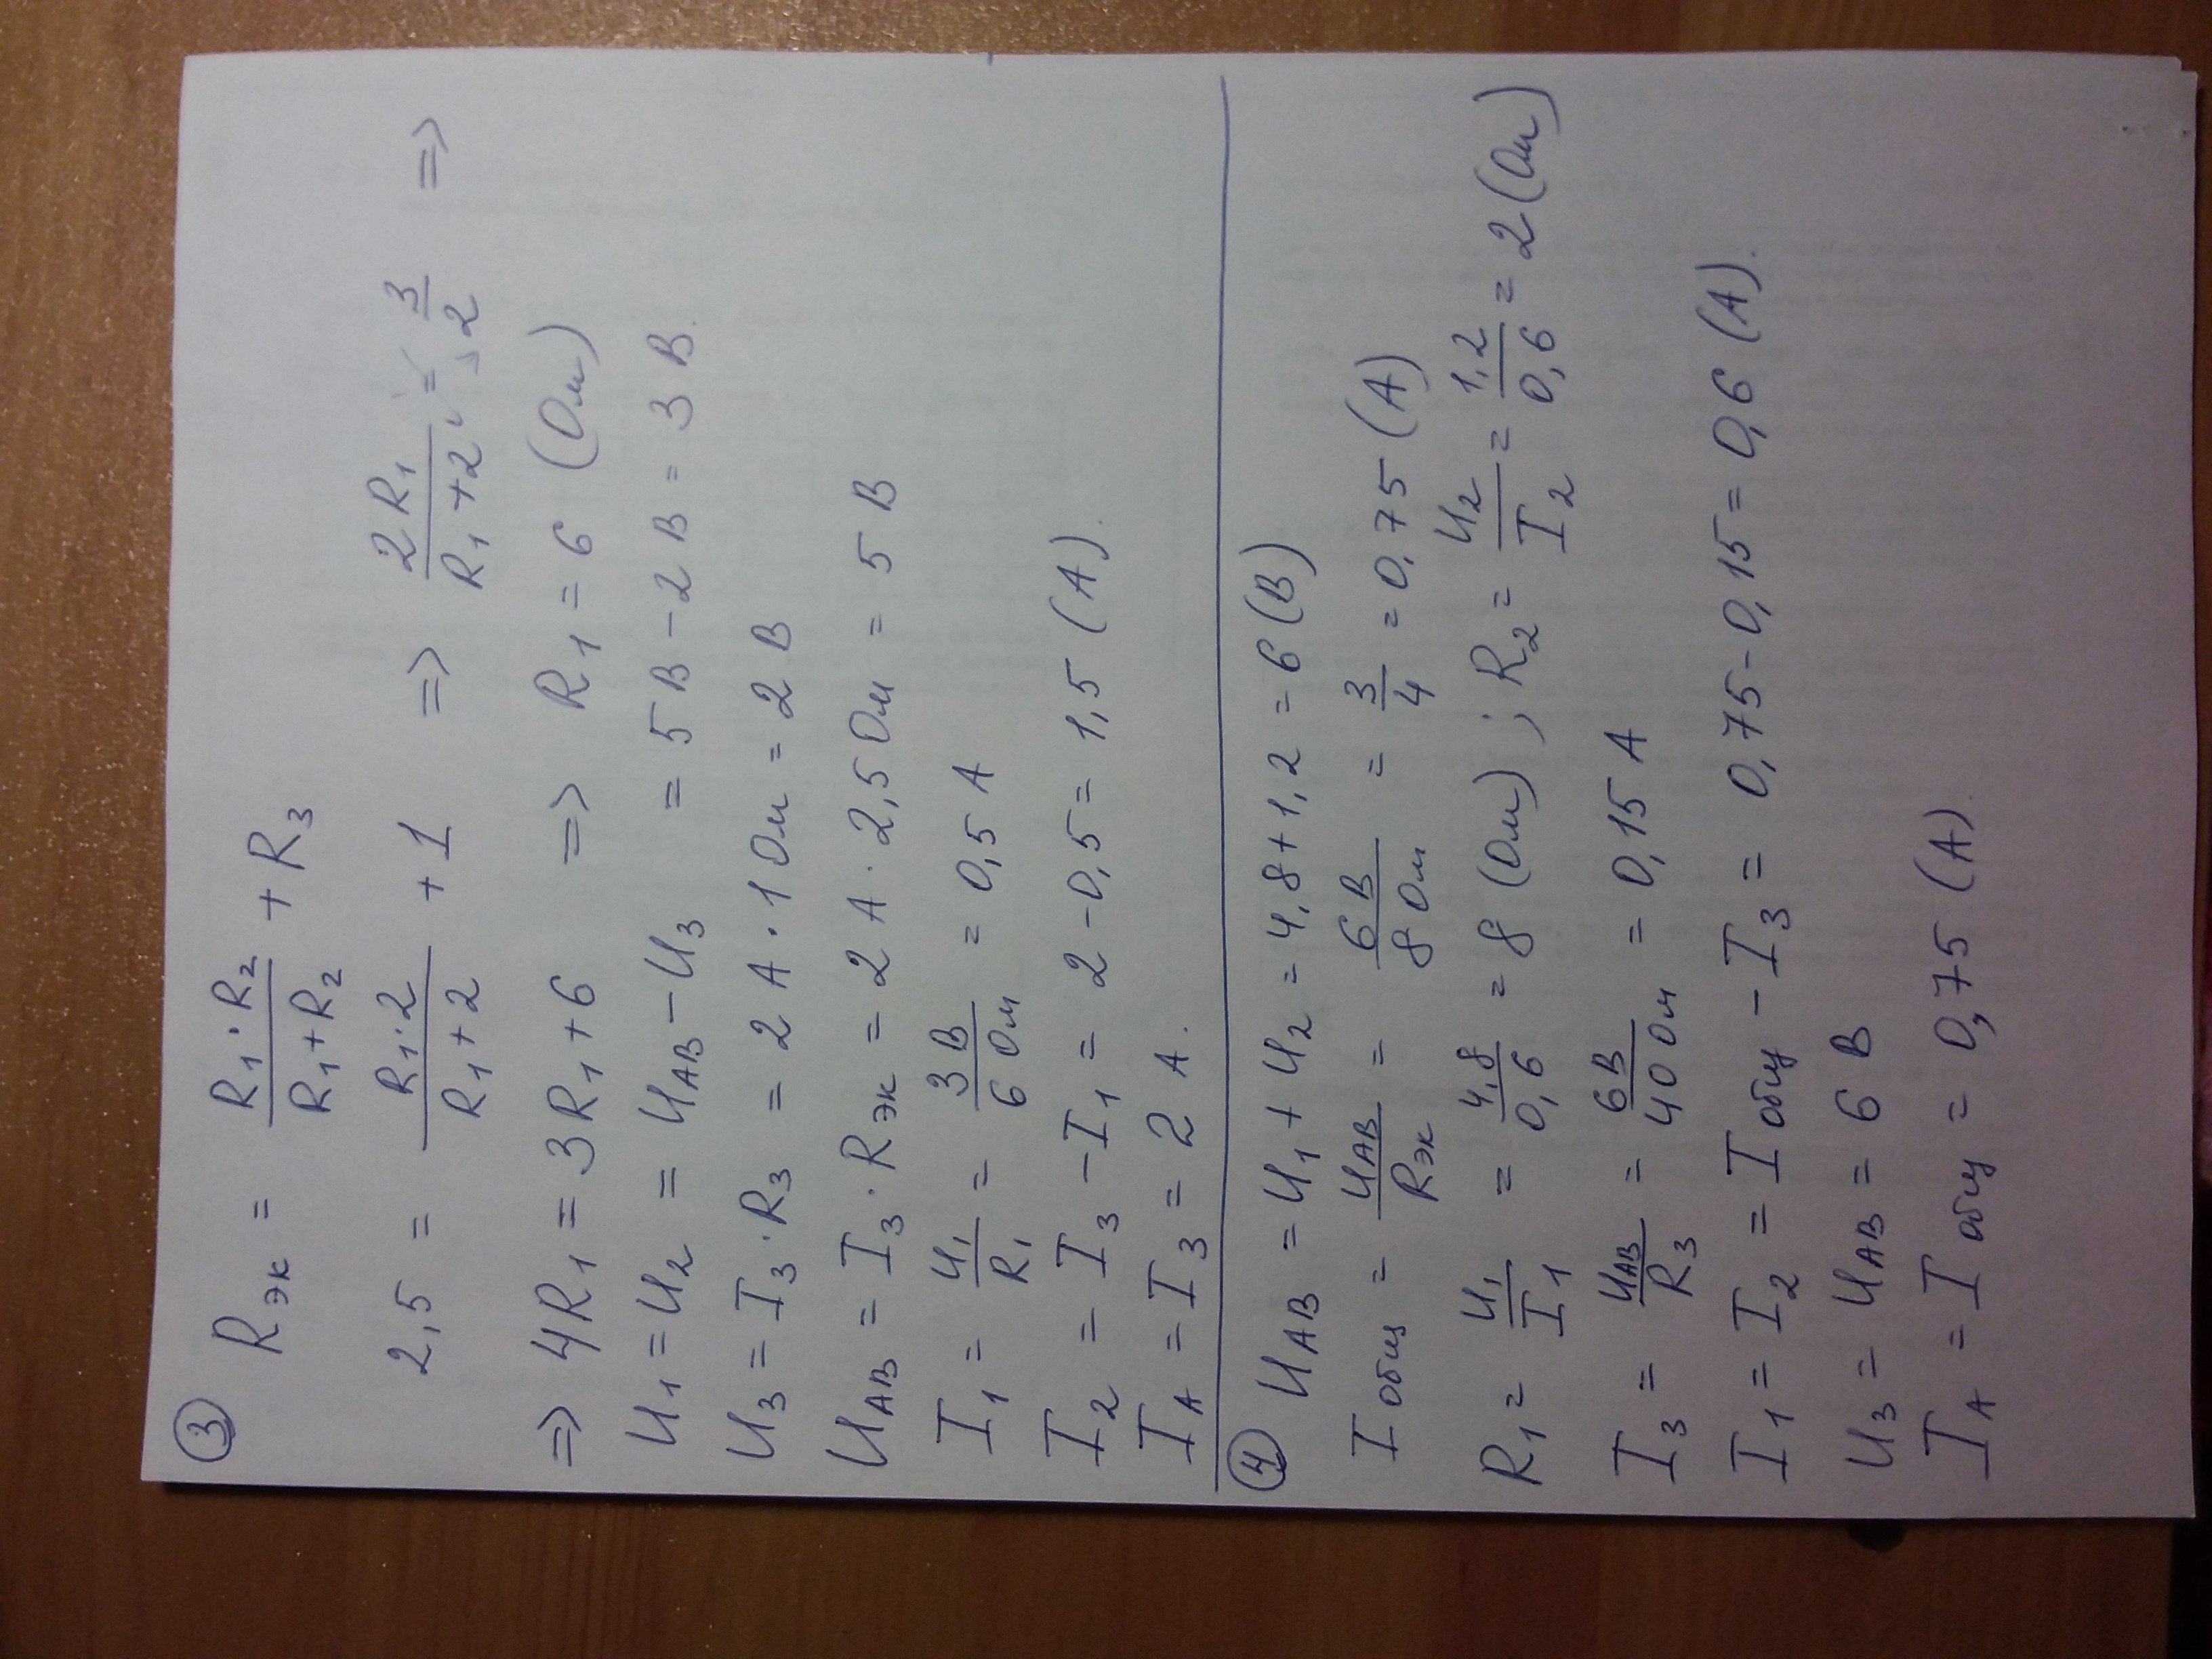 ③ Rэк = R₁·R₂/(R₁+R₂) + R₃
2,5 = R₁·2/(R₁+2) + 1 => 2R₁/(R₁+2) = 3/2 =>
=> 4R₁ = 3R₁+6 => R₁ = 6 (Ом)
U₁ = U₂ = UАВ − U₃ = 5В − 2В = 3В.
U₃ = I₃·R₃ = 2А·1Ом = 2В
UАВ = I₃·Rэк = 2А·2,5Ом = 5В
I₁ = U₁/R₁ = 3В/6Ом = 0,5А
I₂ = I₃ − I₁ = 2−0,5 = 1,5 (А).
IА = I₃ = 2А.
④ UАВ = U₁ + U₂ = 4,8+1,2 = 6(В)
Iобщ = UАВ/Rэк = 6В/8Ом = 3/4 = 0,75 (А)
R₁ = U₁/I₁ = 4,8/0,6 = 8 (Ом); R₂ = U₂/I₂ = 1,2/0,6 = 2(Ом)
I₃ = UАВ/R₃ = 6В/40Ом = 0,15А
I₁ = I₂ = Iобщ − I₃ = 0,75−0,15 = 0,6 (А).
U₃ = UАВ = 6В
IА = Iобщ = 0,75 (А).